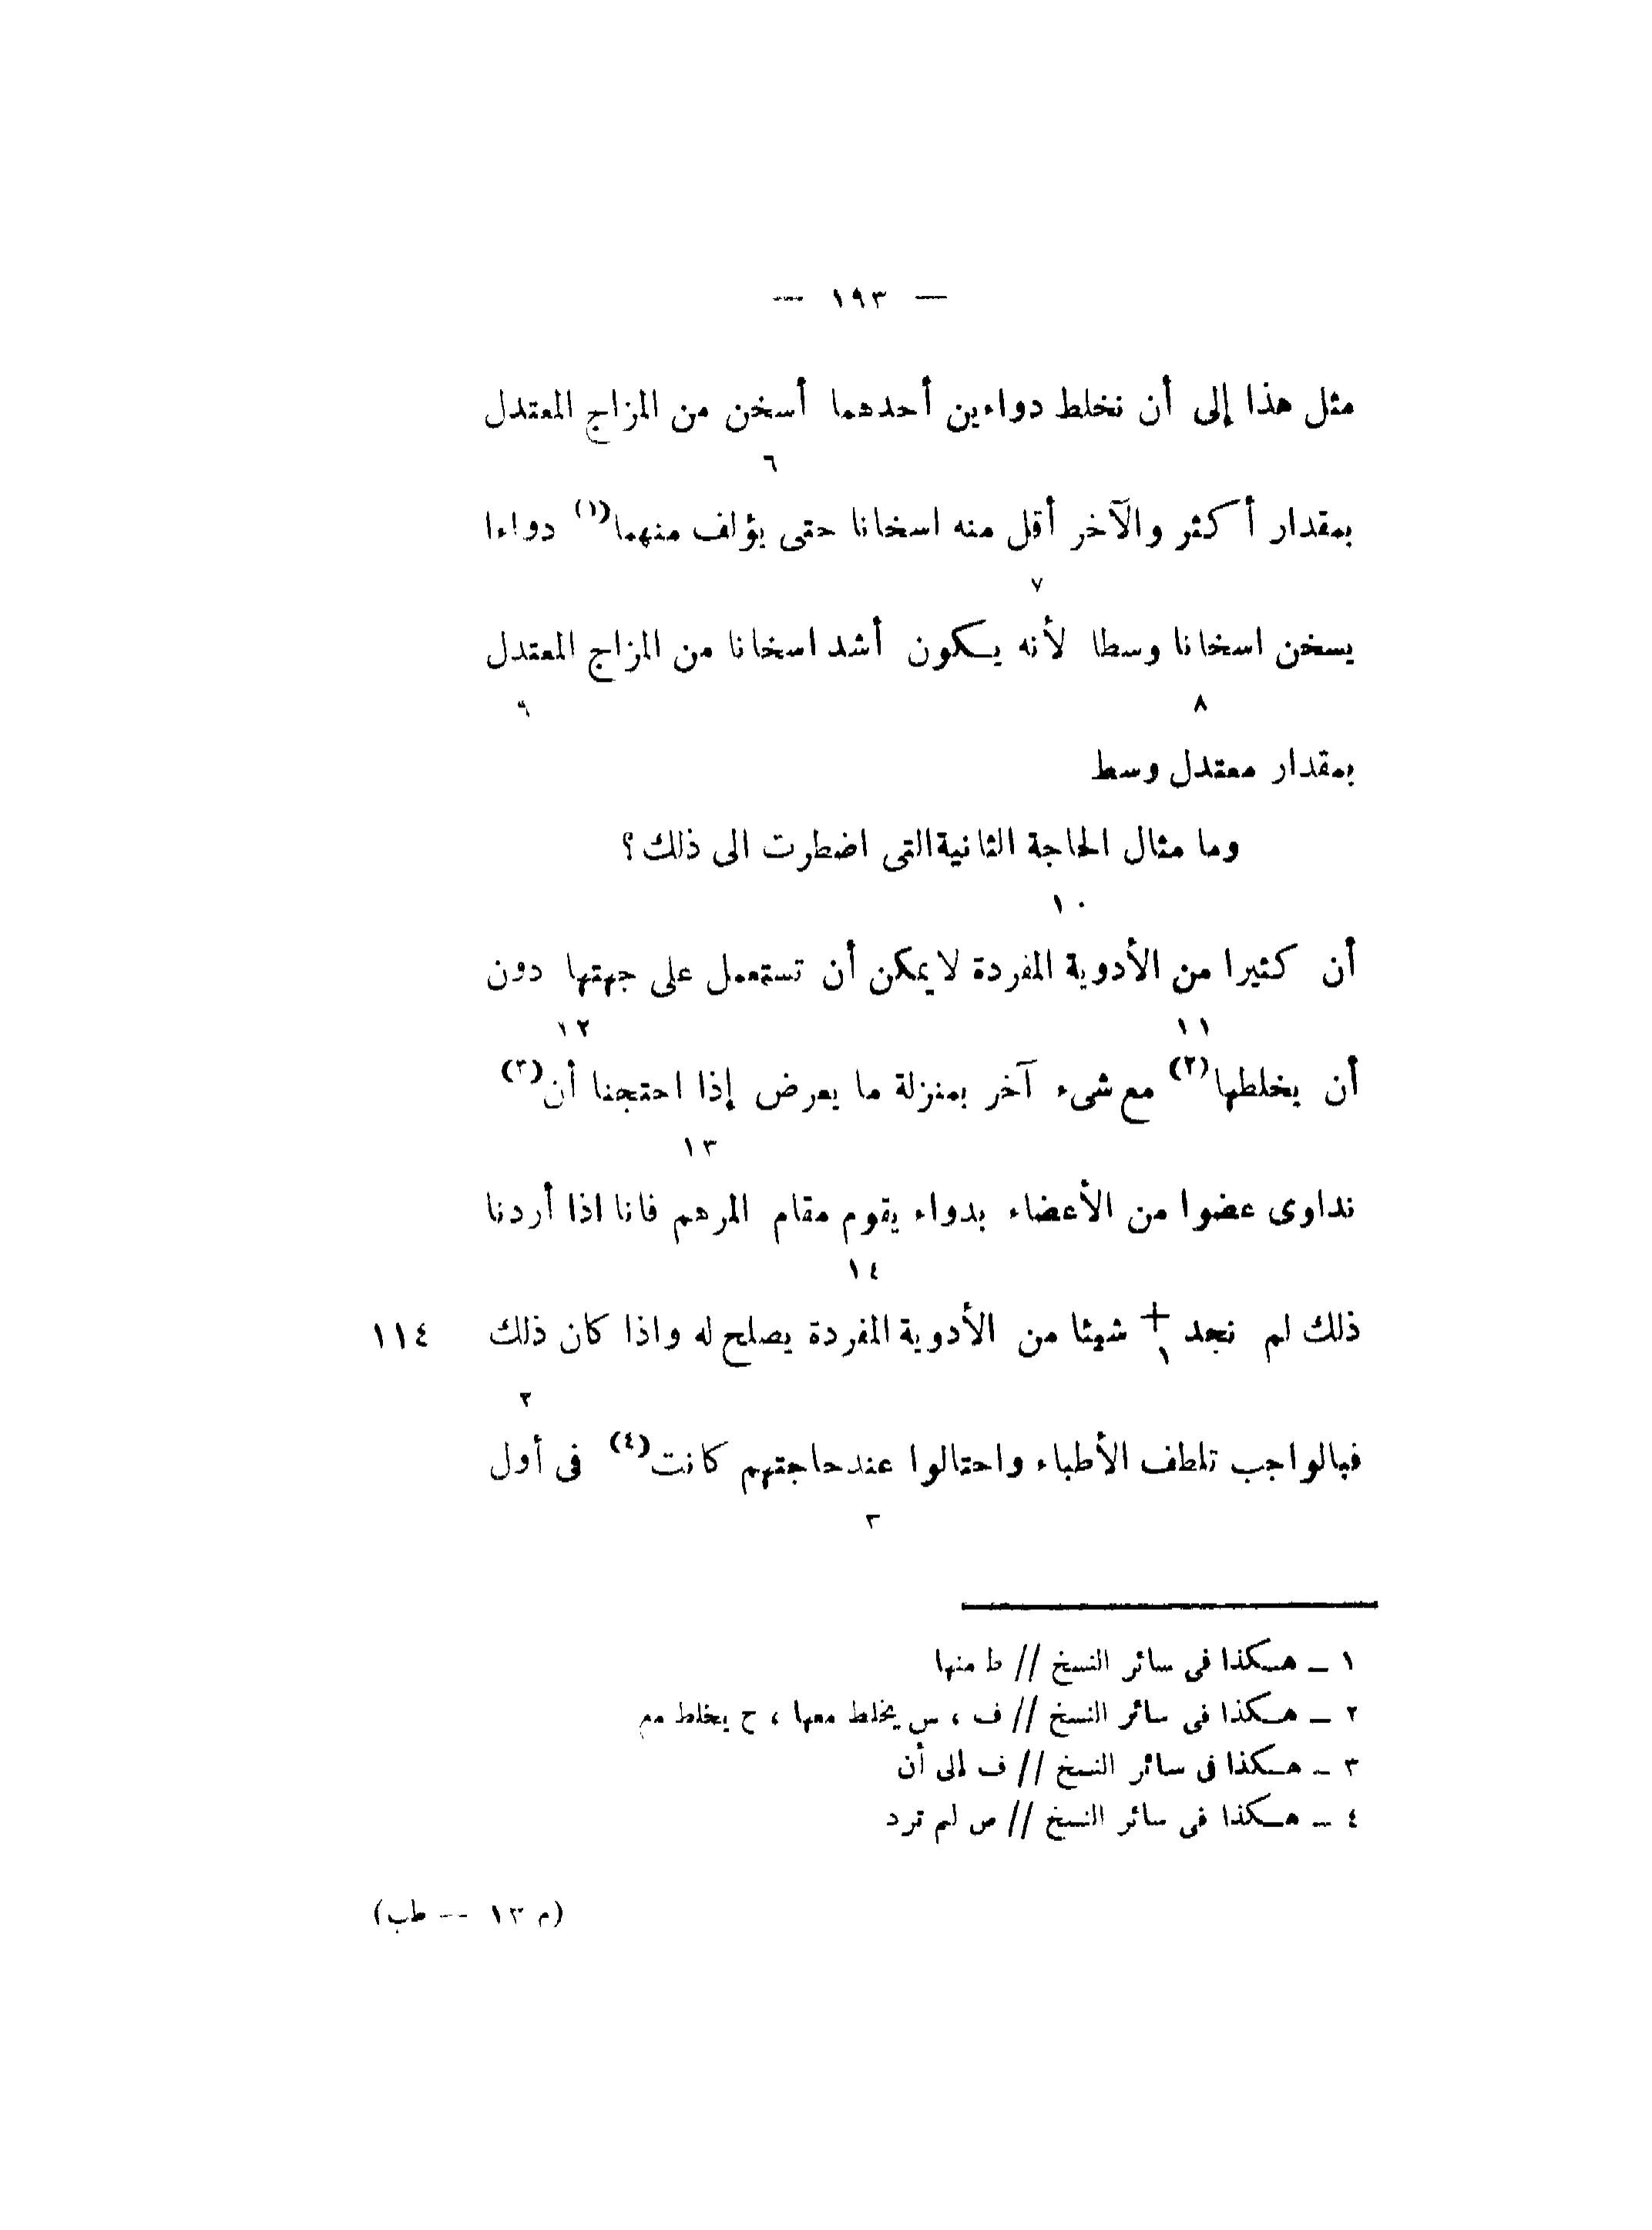 — ١٩٣ —
مثل هذا إلى أن نخلط دواءين أحدهما أسخن من المزاج المعتدل
٦
بمقدار أكثر والآخر أقل منه اسخانا حتى يؤلف منهما(١) دواءا
٧
يسخن اسخانا وسطا لأنه يكون أشد اسخانا من المزاج المعتدل
٨ ٩
بمقدار معتدل وسط
وما مثال الحاجة الثانية التى اضطرت الى ذلك؟
١٠
أن كثيرا من الأدوية المفردة لا يمكن أن تستعمل على جهتها دون
١١ ١٢
أن يخلطها(٢) مع شىء آخر بمنزلة ما يعرض إذا احتجنا أن(٣)
١٣
نداوى عضوا من الأعضاء بدواء يقوم مقام المرهم فانا اذا أردنا
١٤
ذلك لم نجد + شيئا من الأدوية المفردة يصلح له واذا كان ذلك ١١٤
١
٢
فبالواجب تلطف الأطباء واحتالوا عند حاجتهم كانت(٤) فى أول
٣
١ – هكذا فى سائر النسخ // ط منها
٢ – هكذا فى سائر النسخ // ف ، س يخلط معها ، ح يخلط مع
٣ – هكذا فى سائر النسخ // ف إلى أن
٤ – هكذا فى سائر النسخ // ص لم ترد
(م ١٣ -- طب)